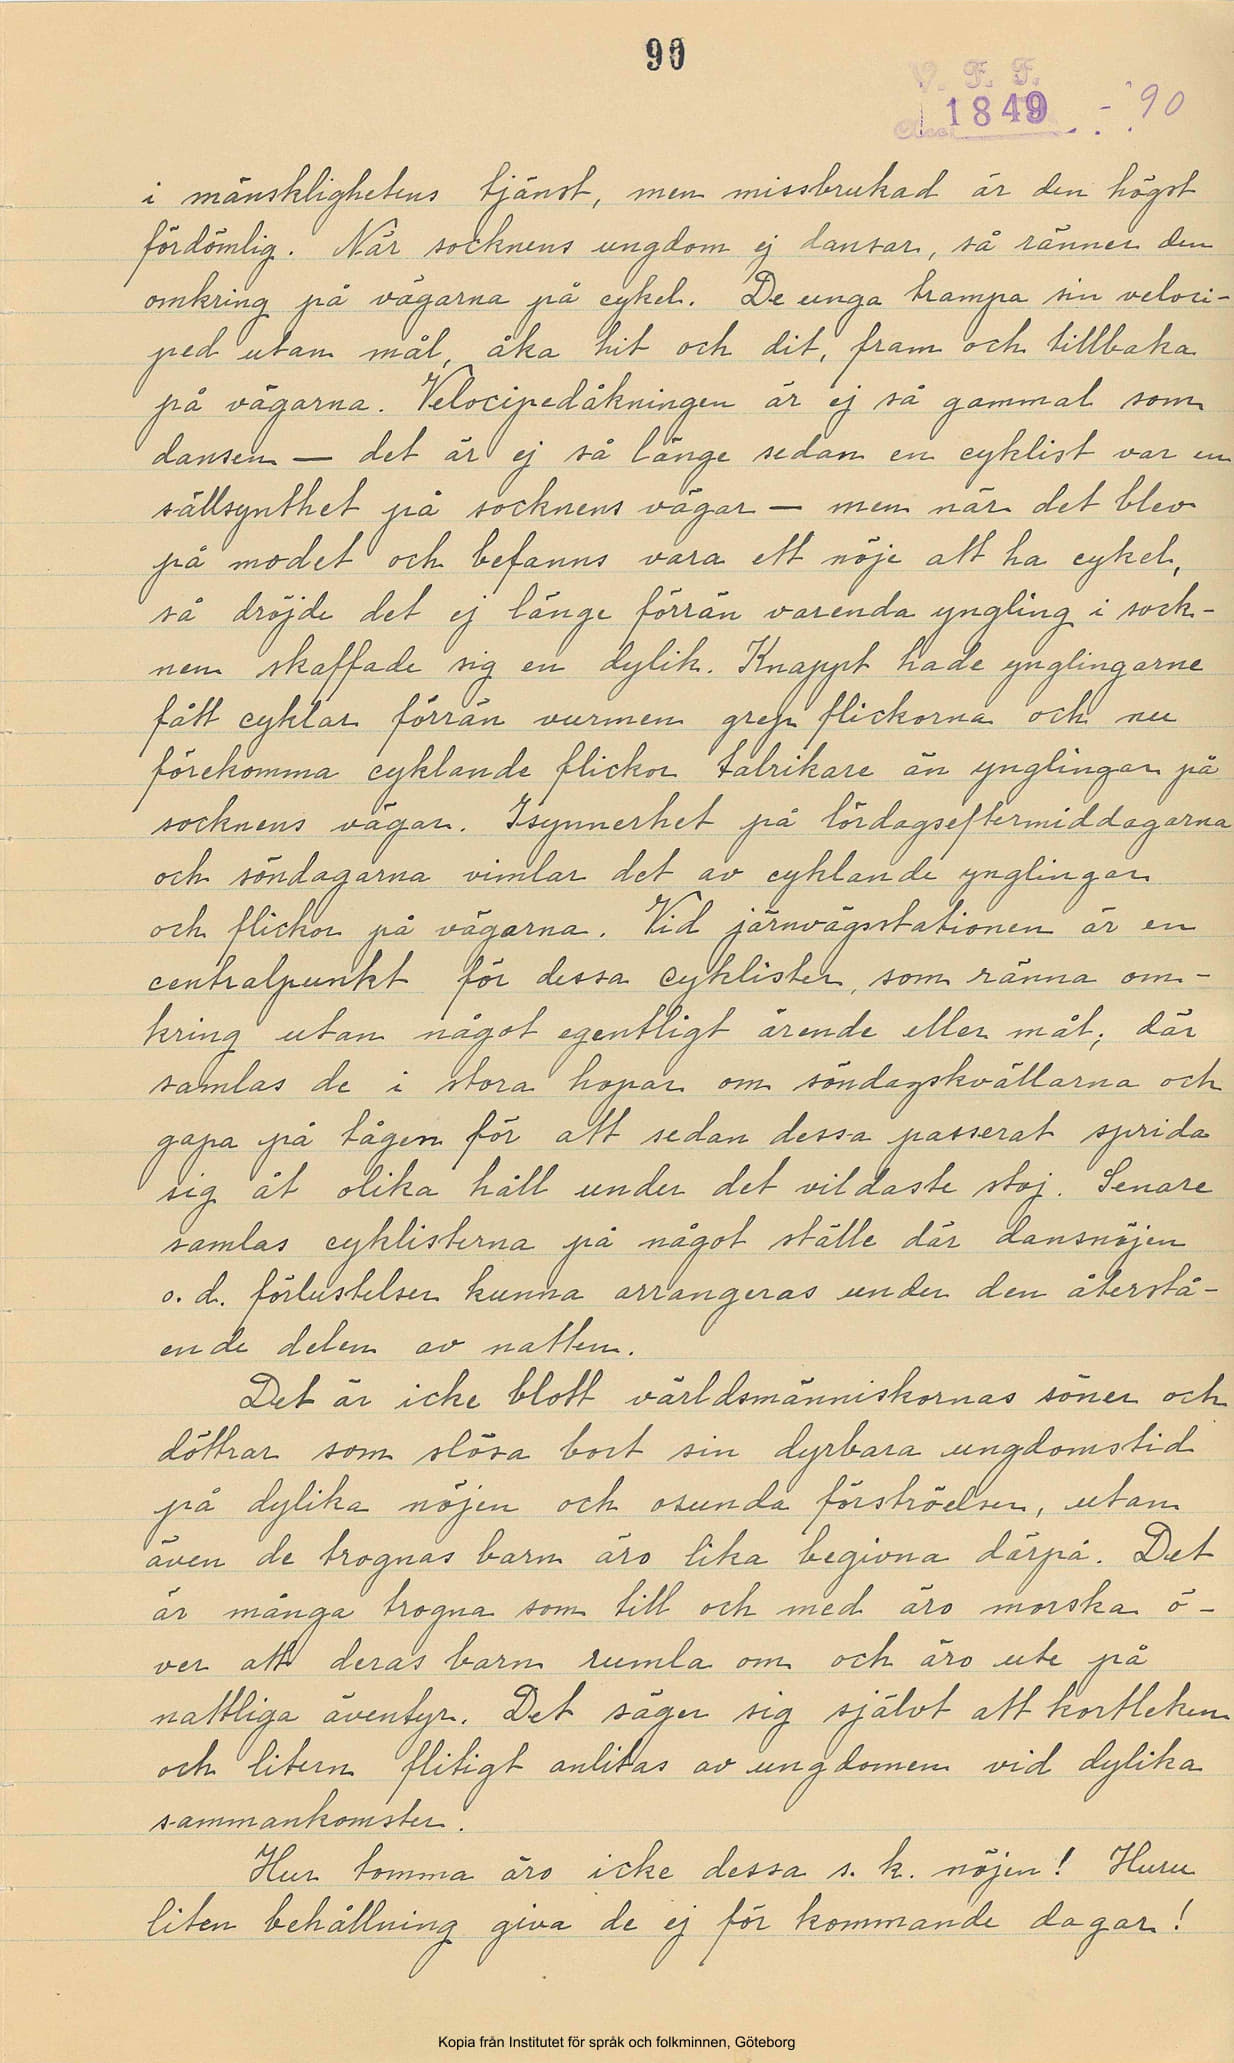 90
V. F. F.
1849 - 90
i mänsklighetens tjänst, men missbrukad är den högst
fördömlig. När socknens ungdom ej dansar, så ränner den
omkring på vägarna på cykel. De unga trampa sin veloci-
ped utan mål, åka hit och dit, fram och tillbaka
på vägarna. Velocipedåkningen är ej så gammal som
dansen — det är ej så länge sedan en cyklist var en
sällsynthet på socknens vägar — men när det blev
på modet och befanns vara ett nöje att ha cykel,
så dröjde det ej länge förrän varenda yngling i sock-
nen skaffade sig en dylik. Knappt hade ynglingarne
fått cyklar förrän vurmen grep flickorna och nu
förekomma cyklande flickor talrikare än ynglingar på
socknens vägar. Isynnerhet på lördagseftermiddagarna
och söndagarna vimlar det av cyklande ynglingar
och flickor på vägarna. Vid järnvägsstationen är en
centralpunkt för dessa cyklister, som ränna om-
kring utan något egentligt ärende eller mål; där
samlas de i stora hopar om söndagskvällarna och
gapa på tågen för att sedan dessa passerat sprida
sig åt olika håll under det vildaste stoj. Senare
samlas cyklisterna på något ställe där dansnöjen
o. d. förlustelser kunna arrangeras under den återstå-
ende delen av natten.
Det är icke blott världsmänniskornas söner och
döttrar som slösa bort sin dyrbara ungdomstid
på dylika nöjen och osunda förströelser, utan
även de trognas barn äro lika begivna därpå. Det
är många trogna som till och med äro morska ö-
ver att deras barn rumla om och äro ute på
nattliga äventyr. Det säger sig självt att kortleken
och litern flitigt anlitas av ungdomen vid dylika
sammankomster.
Hur tomma äro icke dessa s. k. nöjen! Huru
liten behållning giva de ej för kommande dagar!
Kopia från Institutet för språk och folkminnen, Göteborg